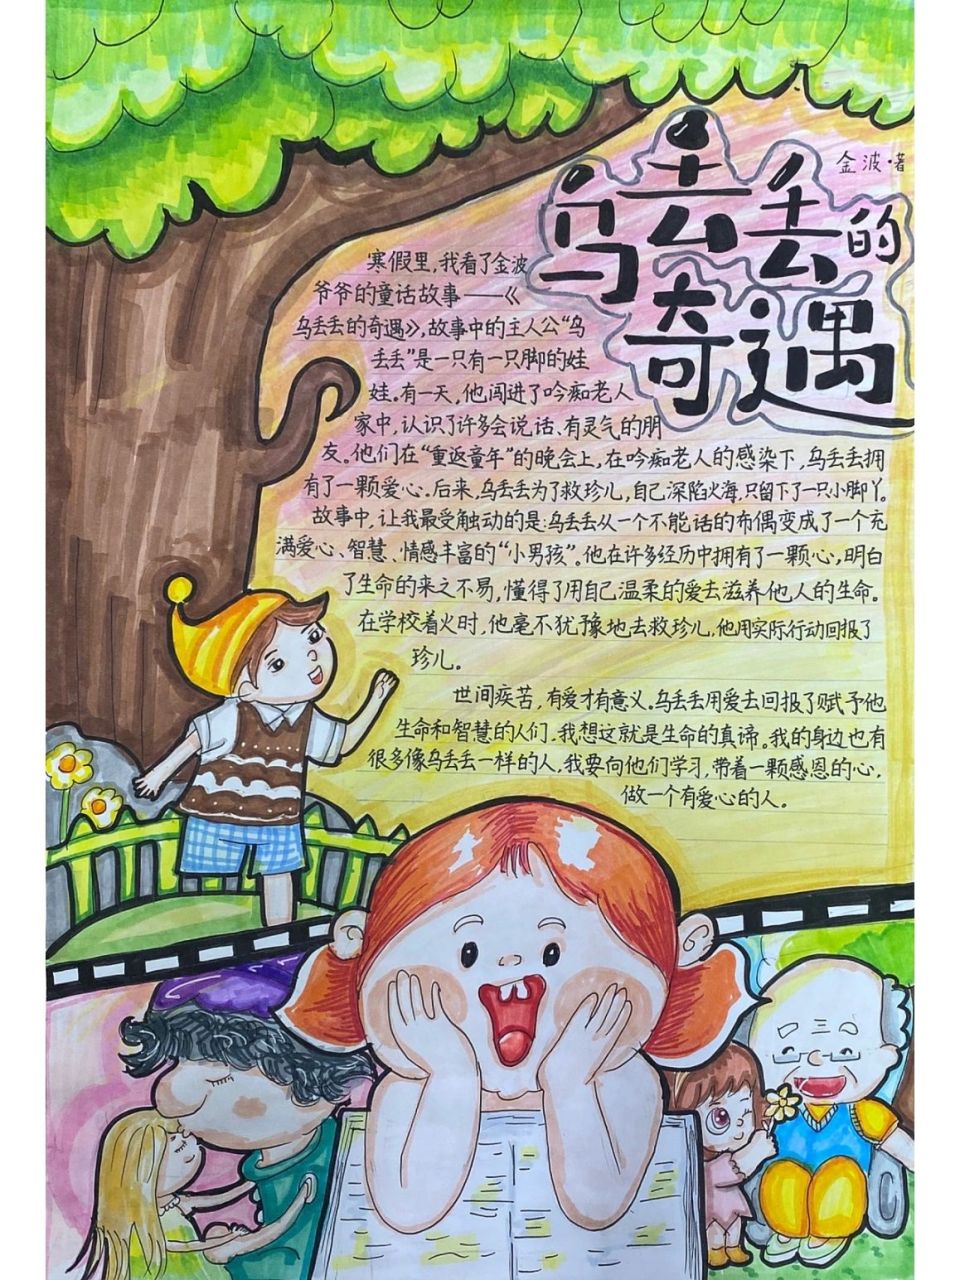 金波·著
乌丢丢的
奇遇
寒假里,我看了金波
爷爷的童话故事——《
乌丢丢的奇遇》,故事中的主人公“乌
丢丢”是一只有一只脚的娃
娃。有一天,他闯进了吟痴老人
家中,认识了许多会说话、有灵气的朋
友。他们在“重返童年”的晚会上,在吟痴老人的感染下,乌丢丢拥
有了一颗爱心。后来,乌丢丢为了救珍儿,自己深陷火海,只留下了一只小脚丫。
故事中,让我最受触动的是:乌丢丢从一个不能话的布偶变成了一个充
满爱心、智慧、情感丰富的“小男孩”。他在许多经历中拥有了一颗心,明白
了生命的来之不易,懂得了用自己温柔的爱去滋养他人的生命。
在学校着火时,他毫不犹豫地去救珍儿,他用实际行动回报了
珍儿。
世间疾苦,有爱才有意义。乌丢丢用爱去回报了赋予他
生命和智慧的人们.我想这就是生命的真谛。我的身边也有
很多像乌丢丢一样的人,我要向他们学习,带着一颗感恩的心.
做一个有爱心的人。